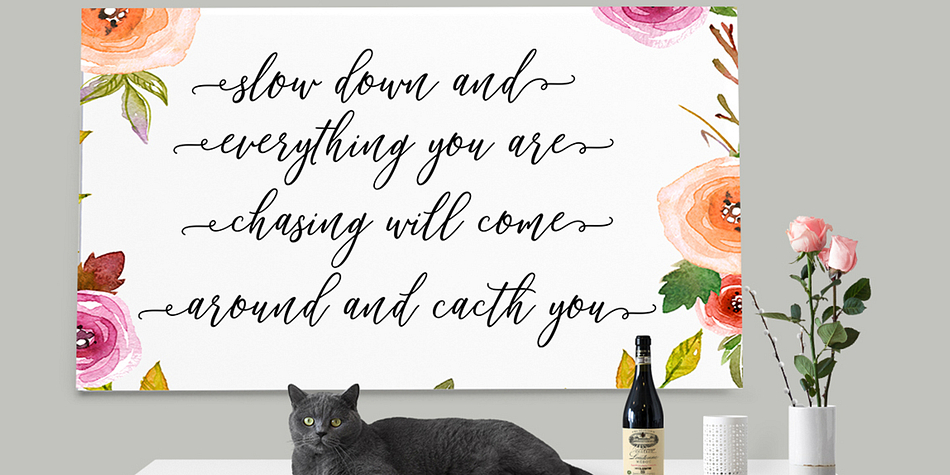 slow down and
everything you are
chasing will come
around and cacth you